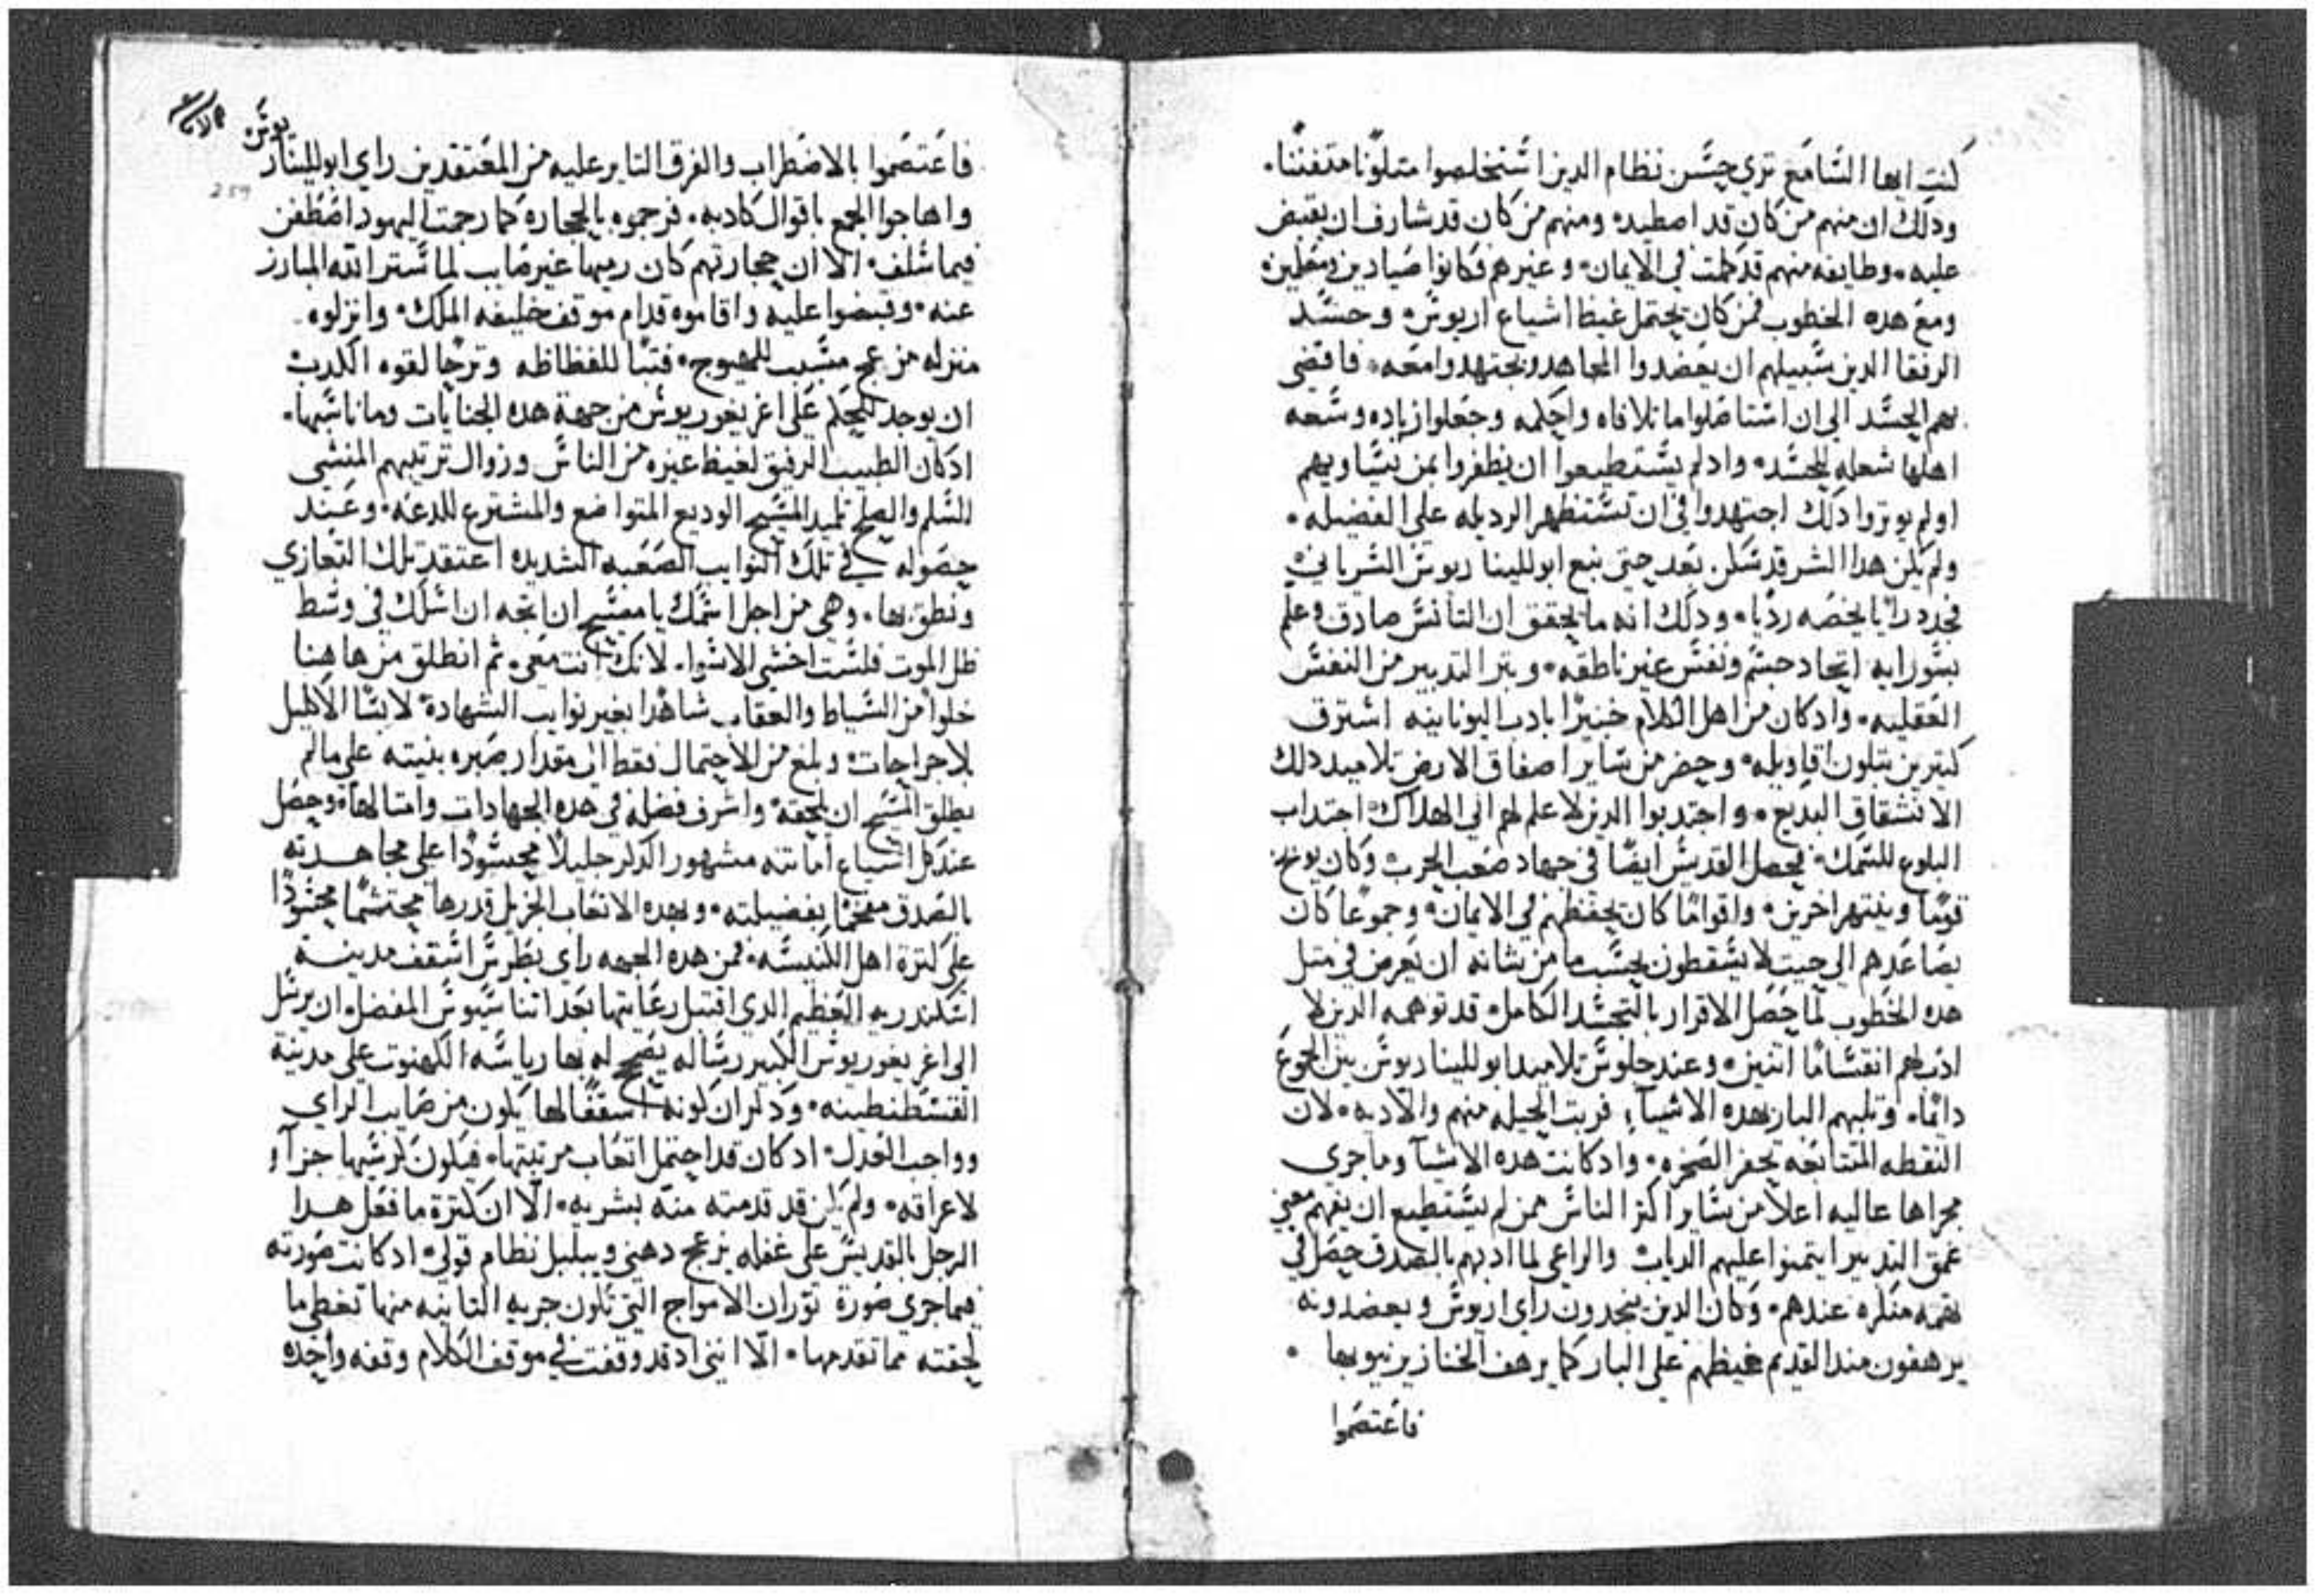 كنت ايها السامع تري حسن نظام الدين استخلصوا متلونا متفننا.
ودلك ان منهم من كان قد اصطيد. ومنهم من كان قد شارف ان يقبض
عليه. وطايفه منهم قد كملت في الايمان. وغيرهم فكانوا صيادين ومعلمين
ومع هده الخطوب فمن كان يحتمل غيظ اشياع اريوس. وحسد
الرفقا الدين سبيلهم ان يعضدوا المجاهد ويجتهدوا معه. فافضي
بهم الحسد الي ان استاصلوا ما تلافاه واحكمه وجعلوا زياده وسعه
اهلها شعله للحسد. واد لم يستطيعوا ان يظفروا بمن يساويهم
او لم يوتروا دلك اجتهدوا في ان تستظهر الرديله علي الفضيله.
ولم يكن هدا الشر قد سكن بعد حتي نبع ابولليناريوس السرياني
فجدد رايا يخصه رديا. ودلك انه ما يحقق ان التانس صادق وعلم
بسو رايه اتحاد جسم ونفس غير ناطقه. وبتر التدبير من النفس
العقليه. واد كان من اهل الكلام خبيرا باداب اليونانيه استرق
كتيرين بتلون اقاويله. وحضر من ساير اصقاق الارض تلاميد دلك
الانشقاق البديع. واجتدبوا الدين لا علم لهم الي الهلاك. اجتداب
البلوع للسمك. فحصل القديس ايضا في جهاد صعب الحرب وكان يوبخ
قوما وينتهر اخرين. واقواما كان يحفظهم في الايمان. وجموعا كان
يصاعدهم الي حيت لا يسقطون بحسب ما من شانه ان يعرض في متل
هده الخطوب لما حصل الاقرار بالتجسد الكامل قد توهمه الدين لا
ادب لهم انقساما اتنين. وعند جلوس تلاميد ابولليناريوس بين الجموع
دايما. وتلبهم البار بهده الاشيآ، قربت الحيله منهم والادبه. لان
النقطه المتتابعه تحفر الصخره. واد كانت هده الاشيآ وما جري
مجراها عاليه اعلا من ساير اكتر الناس ممن لم يستطيع ان يفهم معني
عمق التدبير ايتمنوا عليهم الدياب والراعي لما ادبهم بالصدق حصل في
تهمه منكره عندهم. وكان الدين يجددون راي اريوس ويعضدونه
يرهفون مند القديم غيظهم علي البار كما يرهف الخنازير نيوبها.
فاعتصموا
فاعتصموا بالاضطراب والفرق التاير عليه من المعتقدين راي ابولليناريوس
واهاجوا الجمع باقوال كادبه. فرجموه بالحجاره كما رجمت اليهود اصطفن
فيما سلف. الا ان حجارتهم كان رميها غير صايب لما ستر الله المبارز
عنه. وقبضوا عليه واقاموه قدام موقف خليفه الملك. وانزلوه
منزله مزعج مسبب للهيوج. فتبا للفظاظه وترحا لقوه الكدب
ان يوجد للحكم علي اغريغوريوس من جهة هده الجنايات وما ناسبها.
اد كان الطبيب الرفيق لغيظ غيره من الناس وزوال ترتيبهم المنشي
السلم والصلح تلميد المسيح الوديع المتواضع والمشترع للدعه. وعند
حصوله في تلك النوايب الصعبه الشديده اعتقد تلك التعازي
ونطق بها. وهي من اجل اسمك يا مسيح ان اتجه ان اسلك في وسط
ظل الموت فلست اخشي الاسوا. لانك انت معي. تم انطلق من هاهنا
خلوا من السياط والعقاب شاهدا بغير نوايب الشهادة لابسا الاكليل
بلا جراجات. وبلغ من الاحتمال فقط الي مقدار صبره بنيته علي ما لم
يطلق المسيح ان يلحقه. واشرف فضله في هده الجهادات وامتالها. وحصل
عند كل اشياع امانته مشهور الدكر جليلا محسودا علي مجاهدته
بالصدق مفخما بفضيلته. وبهده الاتعاب الجزيل قدرها محتشما محسودا
علي كترة اهل الكنيسه. فمن هده الجهه راي بطرس اسقف مدينة
اسكندريه العظيم الدي اقتبل رعايتها بعد اتناسيوس المفضل ان يرسل
الي اغريغوريوس الكبير رساله يصحح له بها رياسه الكهنوت علي مدينة
القسطنطينه. ودكر ان كونه اسقفا لها يكون من صايب الراي
وواجب العدل. اد كان قد احتمل اتعاب مرتبتها. فيكون كرسيها جزآ و
لاعراقه. ولم يكن قد قدمته منه بشريه. الا ان كترة ما فعل هدا
الرجل بالقديس علي غفله يزعج دهني ويبلبل نظام قولي. اد كانت صورته
فيما جري صورة توران الامواج التي تكون جريه التانيه منها تغطي ما
لحقته مما تقدمها. الا انني اد قد وقفت في موقف الكلام وقفه واحده